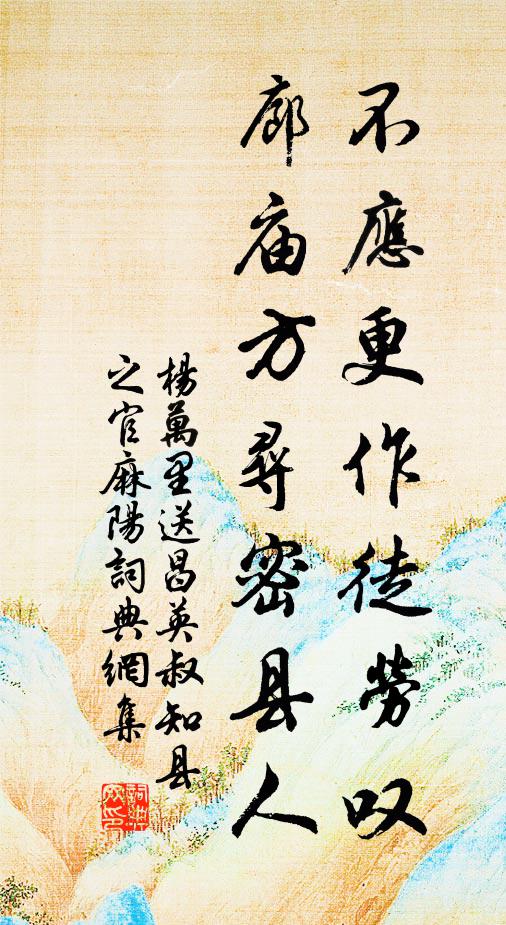 不應更作徒勞叹
廊庙方尋密县人
楊萬里送昌英叔知县
之官麻陽詞典網集